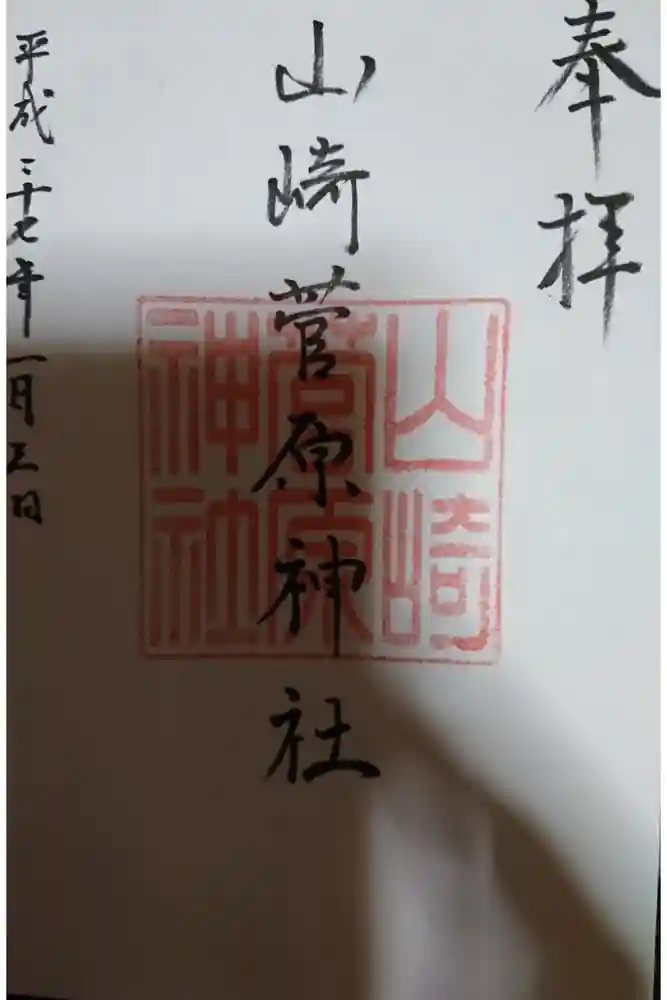 奉拝
山崎菅原神社
山崎
菅原
神社
平成二十七年一月三日